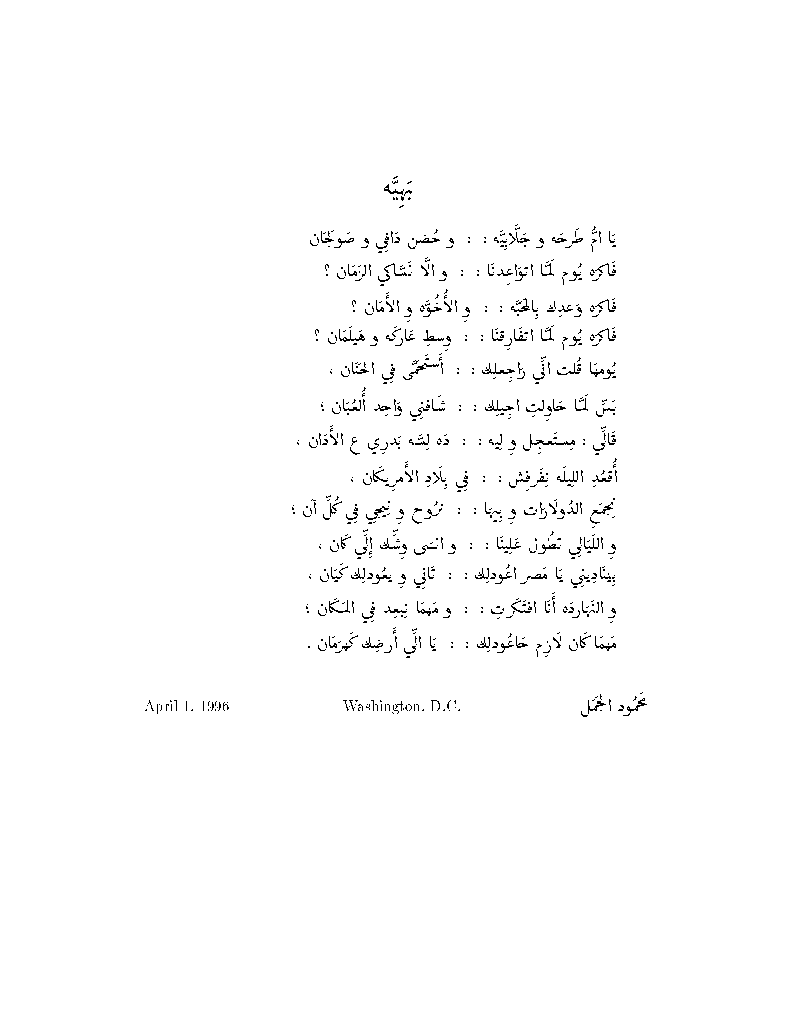 بَهِيَّه
يَا امُّ طَرحَه و جَلَّابِيَّه : : و حُضن دَافِي و صَولَجَان
فَاكرَه يُوم لَمَّا اتوَاعِدنَا : : و الَّا نَسَّاكي الزَمَان ؟
فَاكرَه وَعدِك بِالمَحَبَّه : : وِ الأُخُوَّه وِ الأَمَان ؟
فَاكرَه يُوم لَمَّا اتفَارِقنَا : : وِسطِ عَاركَه و هَيلَمَان ؟
يُومهَا قُلت انِّي رَاجِعلِك : : أَستَحَمَّى فِي الحَنَان ،
بَسِّ لَمَّا حَاولتِ اجِيلِك : : شَافنِي وَاحِد أُلعُبَان ؛
قَالِّي : مِستَعجِل وِ لِيه : : دَه لِسَّه بَدرِي عَ الأَدَان ،
أُقعُدِ الليلَه نِفَرفِش : : فِي بِلَادِ الأَمرِيكَان ،
نِجمَعِ الدُولَارَات وِ بِيهَا : : نرُوح و نِيجِي فِي كُلِّ آن ؛
وِ اللَيَالِي تطُول عَلِينَا : : و انسَى وِشِّك إِلِّي كَان ،
بِينَادِينِي يَا مَصر اعُودلِك : : تَانِي و يعُودلِك كَيَان ،
وِ النَهَاردَه أَنَا افتَكَرتِ : : و مَهمَا نِبعِد فِي المَكَان ؛
مَهمَا كَان لَازِم حَاعُودلِك : : يَا الِّي أَرضِك كَهرَمَان .
مَحمُود الجَمَل Washington, D.C. April 1, 1996